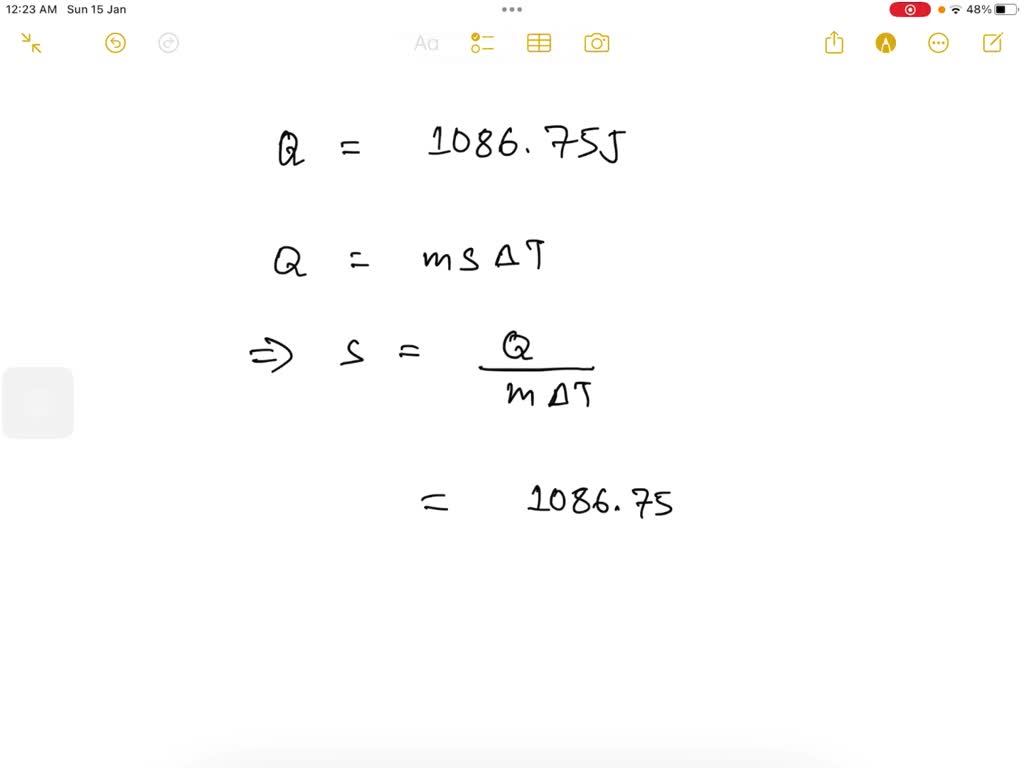 12:23 AM Sun 15 Jan
48%
Aa
Q = 1086.75J
Q = ms ΔT
⇒ s = Q
m ΔT
= 1086.75